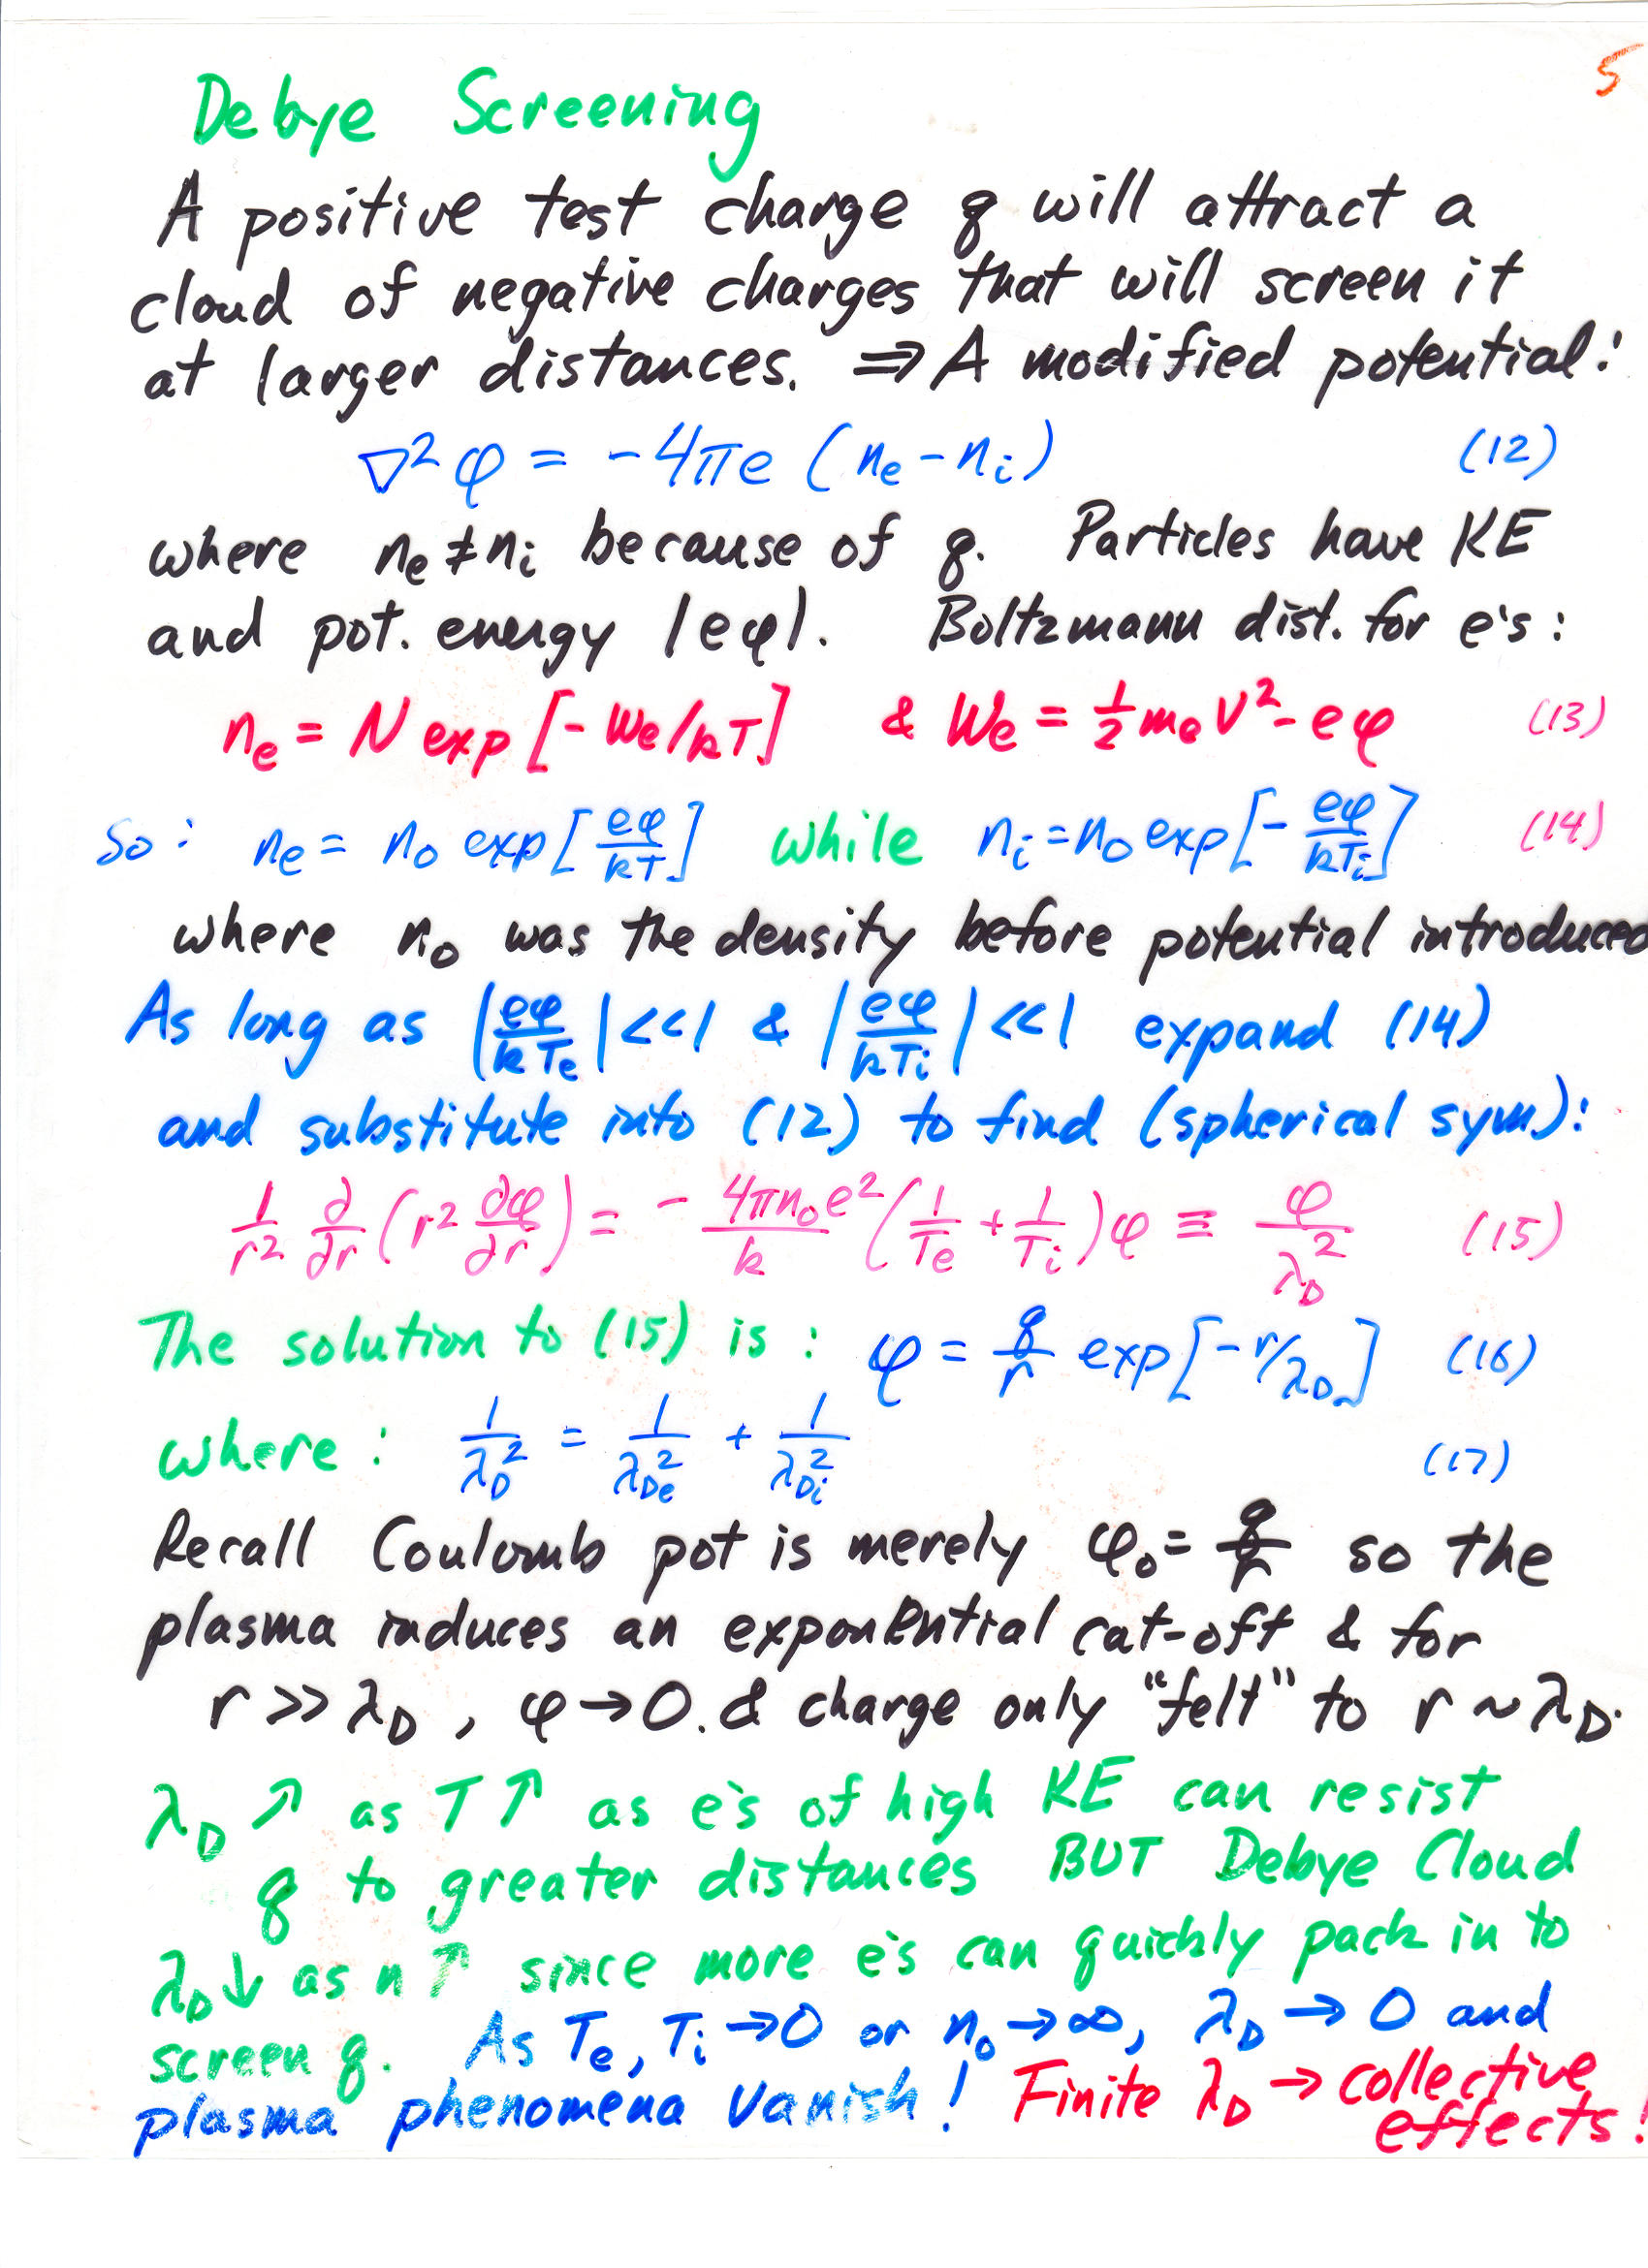 5
Debye Screening
A positive test charge q will attract a
cloud of negative charges that will screen it
at larger distances. ⇒ A modified potential:
∇²φ = -4πe (nₑ - nᵢ) (12)
where nₑ ≠ nᵢ because of q. Particles have KE
and pot. energy |eφ|. Boltzmann dist. for e's:
nₑ = N exp [-Wₑ/kT] & Wₑ = ½ mₑV² - eφ (13)
So: nₑ = n₀ exp[eφ/kT] while nᵢ = n₀ exp[- eφ/kTᵢ] (14)
where n₀ was the density before potential introduced
As long as |eφ/kTₑ| << 1 & |eφ/kTᵢ| << 1 expand (14)
and substitute into (12) to find (spherical sym):
1/r² ∂/∂r (r² ∂φ/∂r) = - 4πn₀e²/k (1/Tₑ + 1/Tᵢ)φ ≡ φ/λ_D² (15)
The solution to (15) is: φ = q/r exp[-r/λ_D] (16)
where: 1/λ_D² = 1/λ_De² + 1/λ_Di² (17)
Recall Coulomb pot is merely φ₀ = q/r so the
plasma induces an exponential cut-off & for
r >> λ_D, φ → 0. & charge only "felt" to r ~ λ_D.
λ_D ↗ as T ↑ as e's of high KE can resist
q to greater distances BUT Debye Cloud
λ_D ↓ as n ↑ since more e's can quickly pack in to
screen q. As Tₑ, Tᵢ → 0 or n₀ → ∞, λ_D → 0 and
plasma phenomena vanish! Finite λ_D → collective
effects!